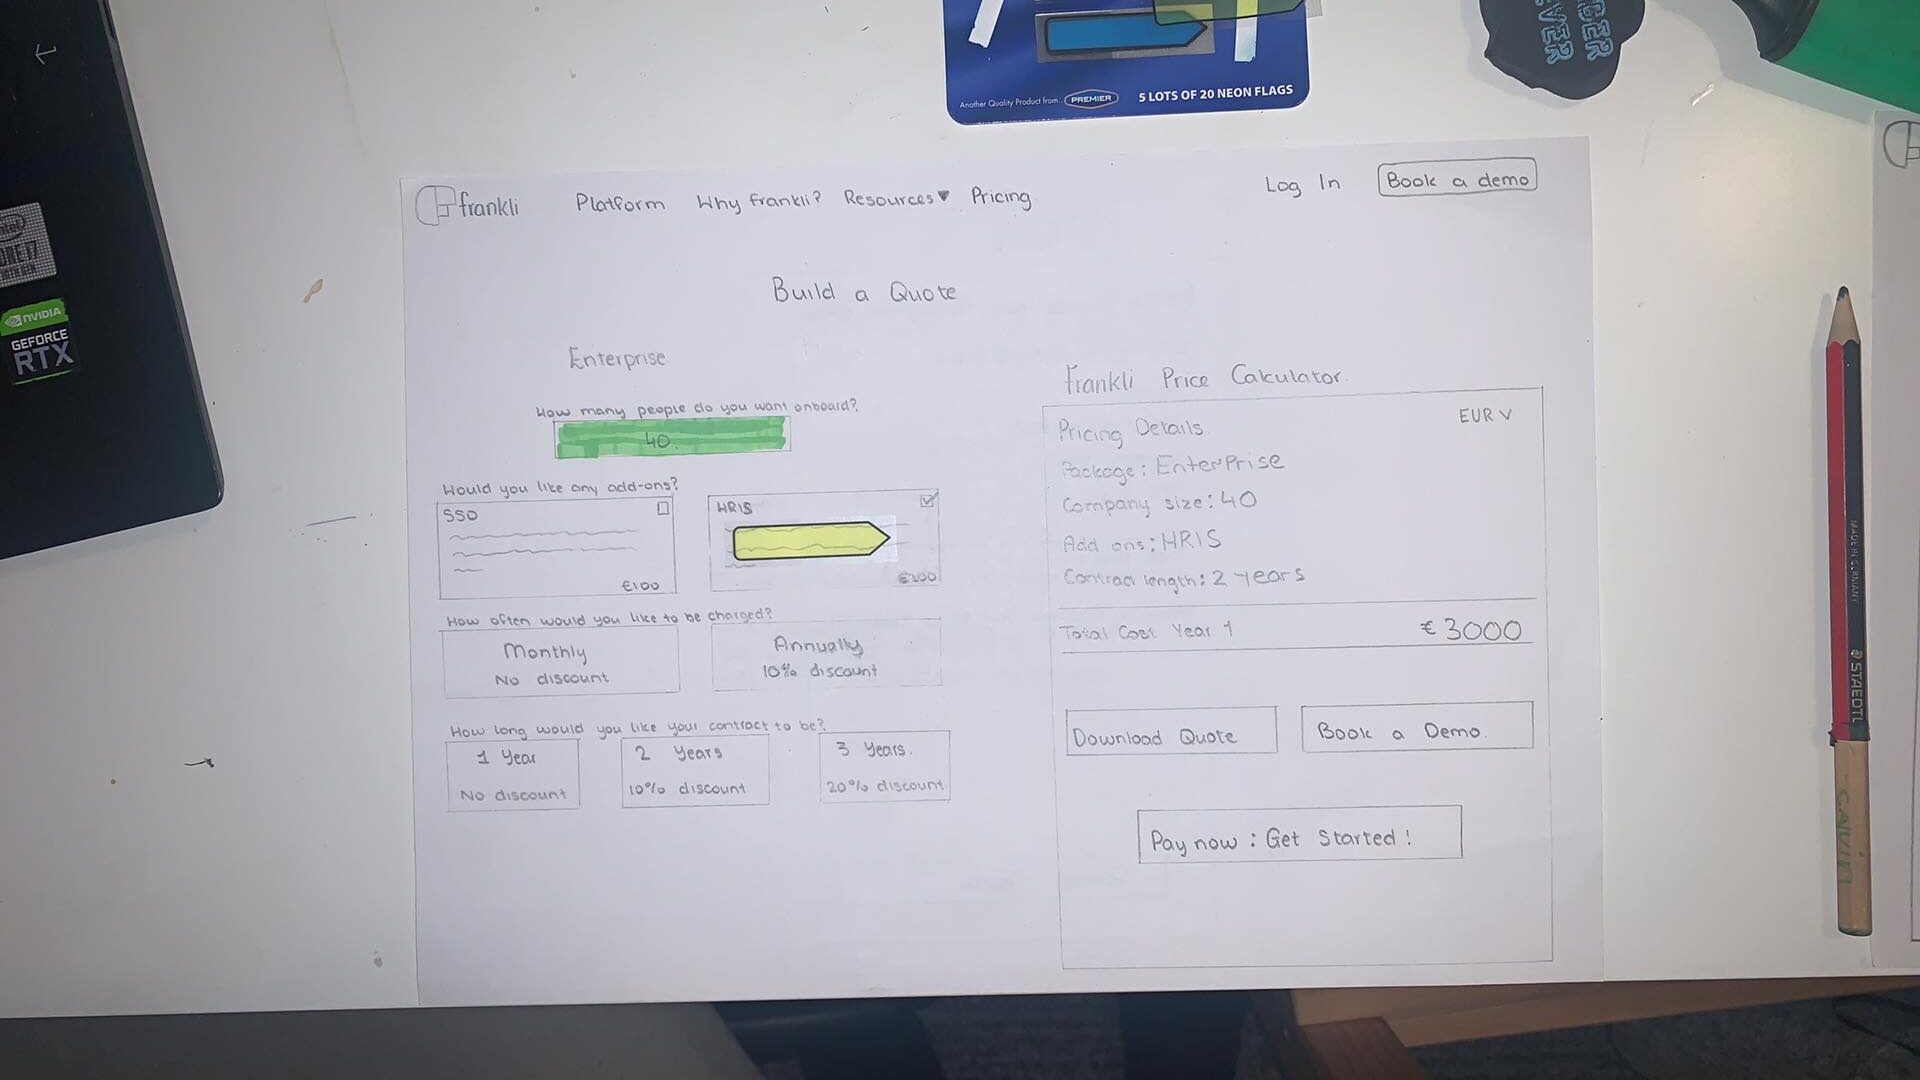 5 LOTS OF 20 NEON FLAGS
Another Quality Product from... PREMIER
frankli Platform Why frankli? Resources▼ Pricing Log In Book a demo
Build a Quote
Enterprise
How many people do you want onboard?
40
Would you like any add-ons?
SSO
€100
HRIS
€200
How often would you like to be charged?
Monthly
No discount
Annually
10% discount
How long would you like your contract to be?
1 Year
No discount
2 Years
10% discount
3 Years.
20% discount
Frankli Price Calculator.
Pricing Details
EUR V
Package: Enterprise
Company size: 40
Add ons: HRIS
Contract length: 2 years
Total Cost Year 1 € 3000
Download Quote
Book a Demo.
Pay now : Get Started !
NVIDIA
GEFORCE
RTX
MADE IN GERMANY